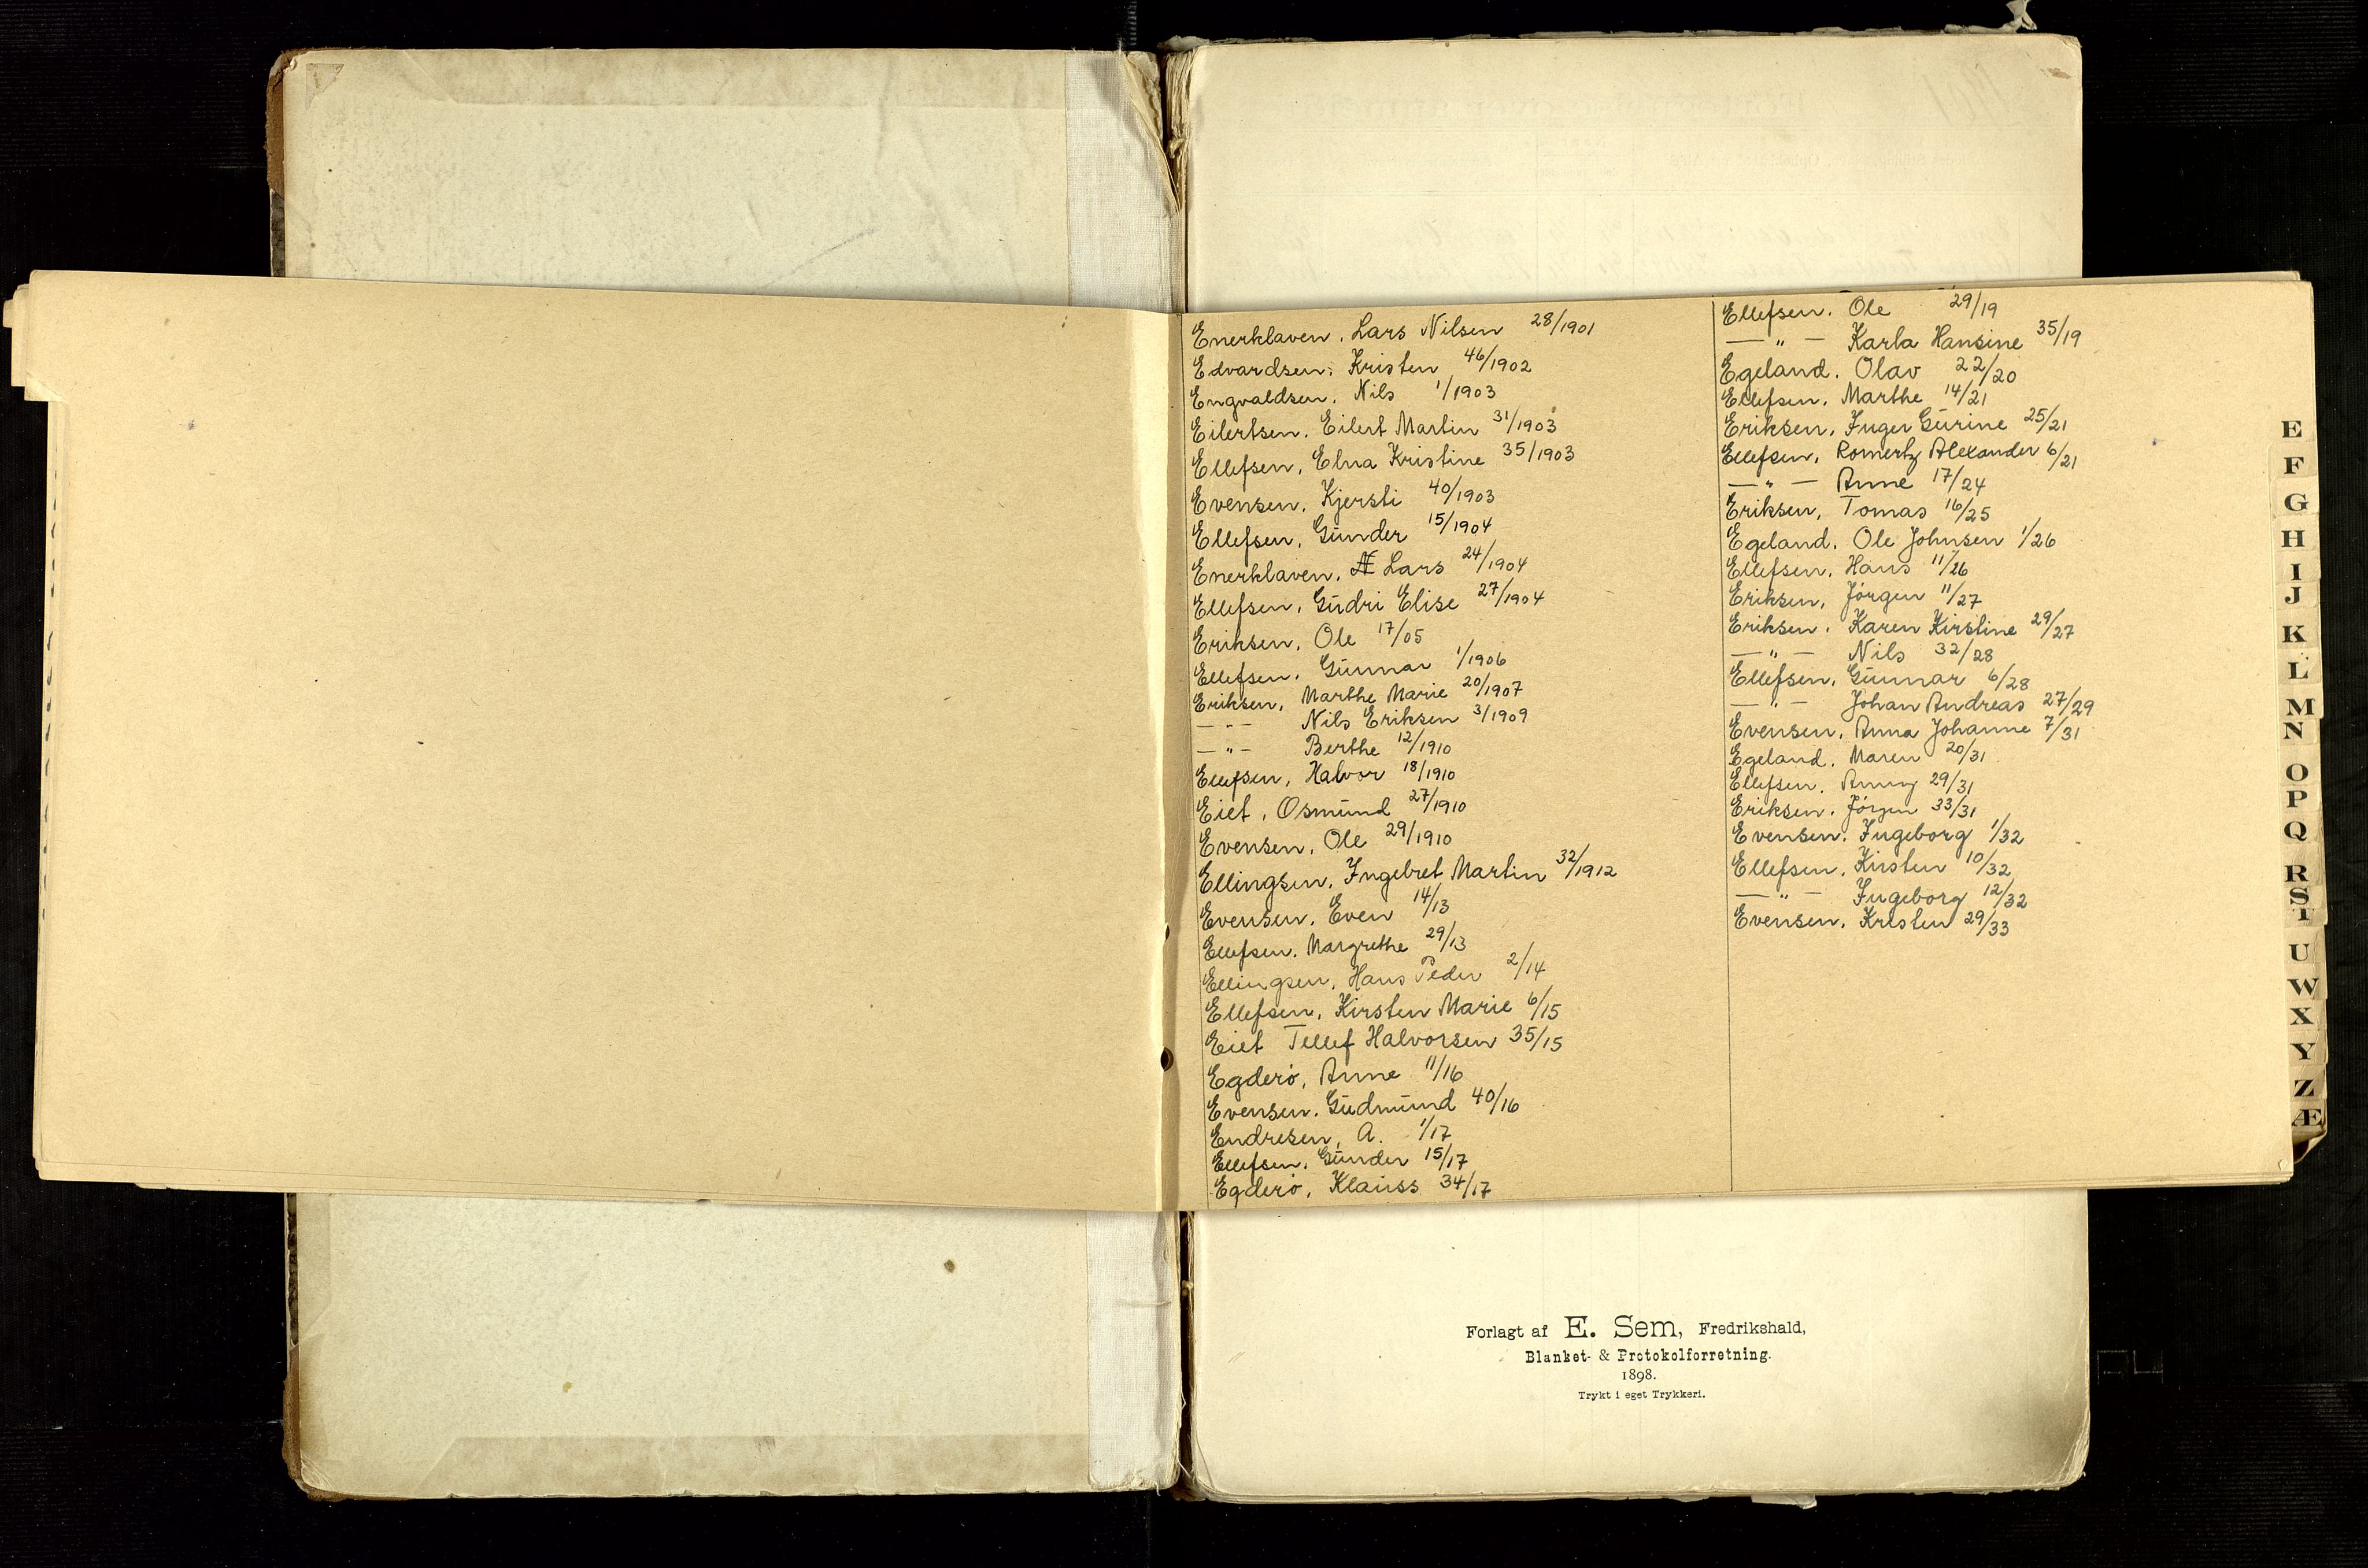 Enerklaven, Lars Nilsen 28/1901
Edvardsen, Kristen 46/1902
Engvaldsen, Nils 1/1903
Eilertsen, Eilert Martin 31/1903
Ellefsen, Elna Kristine 35/1903
Evensen, Kjersti 40/1903
Ellefsen, Gunder 15/1904
Enerklaven, Lars 24/1904
Ellefsen, Gudri Elise 27/1904
Eriksen, Ole 17/05
Ellefsen, Gunnar 1/1906
Eriksen, Marthe Marie 20/1907
— " — Nils Eriksen 3/1909
— " — Berthe 12/1910
Ellefsen, Halvor 18/1910
Eiet, Osmund 27/1910
Evensen, Ole 29/1910
Ellingsen, Ingebret Martin 32/1912
Evensen, Even 14/13
Ellefsen, Margrethe 29/13
Ellingsen, Hans Peder 2/14
Ellefsen, Kirsten Marie 6/15
Eiet Tellef Halvorsen 35/15
Egderö, Anne 11/16
Evensen, Gudmund 40/16
Endresen, A. 1/17
Ellefsen, Gunder 15/17
Egderö, Klauss 34/17
Ellefsen, Ole 29/19
— " — Karla Hansine 35/19
Egeland, Olav 22/20
Ellefsen, Marthe 14/21
Eriksen, Inger Gurine 25/21
Ellefsen, Romertz Alexander 6/21
— " — Anne 17/24
Eriksen, Tomas 16/25
Egeland, Ole Johnsen 1/26
Ellefsen, Hans 11/26
Eriksen, Jörgen 11/27
Eriksen, Karen Kirstine 29/27
— " — Nils 32/28
Ellefsen, Gunnar 6/28
— " — Johan Andreas 27/29
Evensen, Anna Johanne 7/31
Egeland, Maren 20/31
Ellefsen, Anny 29/31
Eriksen, Jörgen 33/31
Evensen, Ingeborg 1/32
Ellefsen, Kirsten 10/32
— " — Ingeborg 12/32
Evensen, Kristen 29/33
E
F
G
H
I
J
K
L
M
N
O
P
Q
R
S
T
U
W
X
Y
Z
Æ
Forlagt af E. Sem, Fredrikshald,
Blanket- & Protokolforretning.
1898.
Trykt i eget Trykkeri.